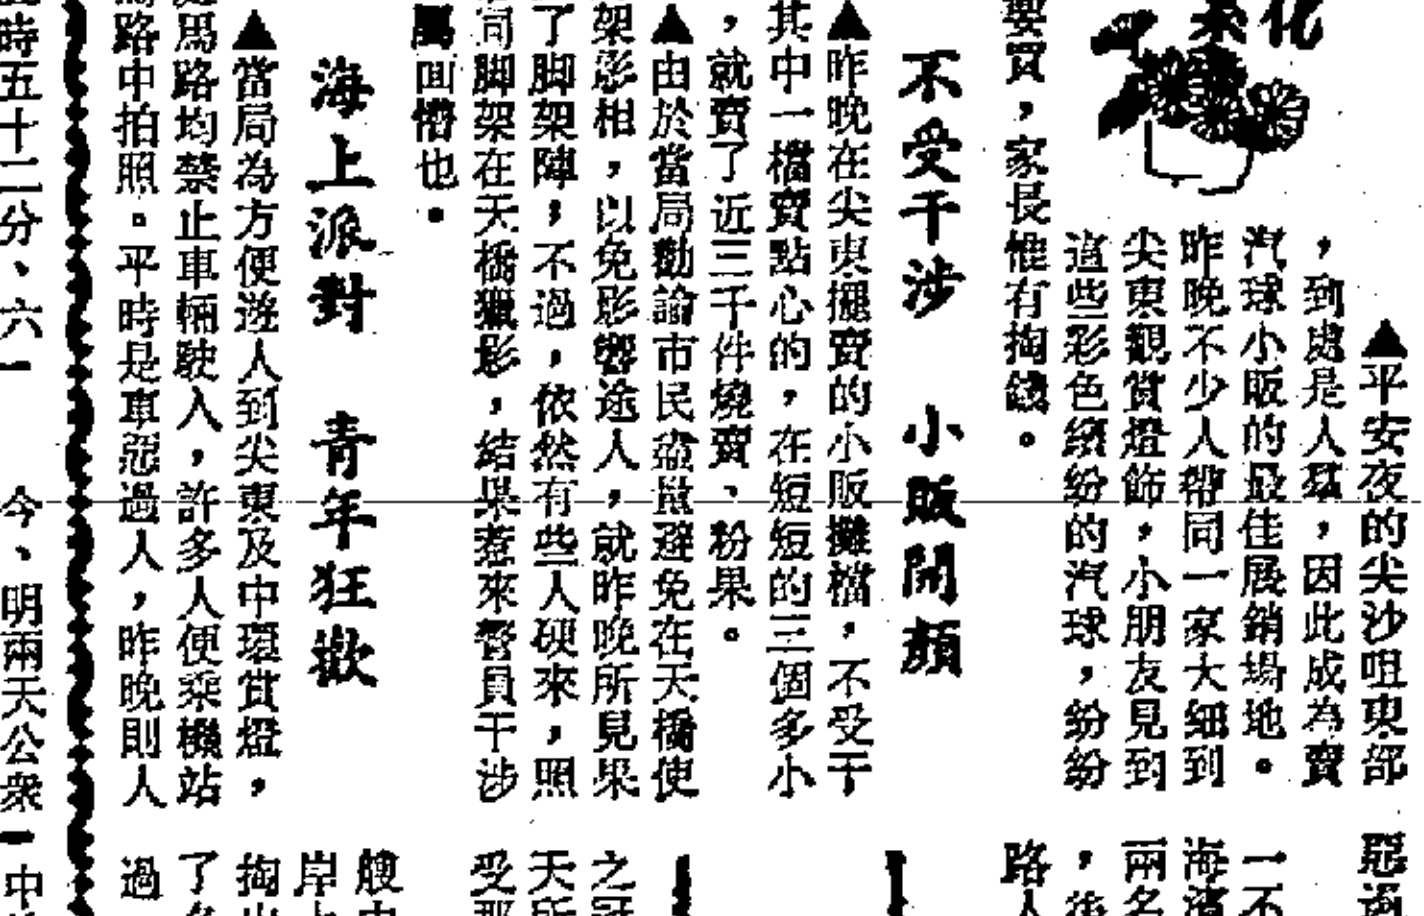 化
▲平安夜的尖沙咀東部
，到處是人羣，因此成為賣
汽球小販的最佳展銷場地。
昨晚不少人帶同一家大細到
尖東觀賞燈飾，小朋友見到
這些彩色繽紛的汽球，紛紛
要買，家長惟有掏錢。
不受干涉　小販開顏
▲昨晚在尖東擺賣的小販攤檔，不受干
其中一檔賣點心的，在短短的三個多小
，就賣了近三千件燒賣、粉果。
▲由於當局勸諭市民盡量避免在天橋使
架影相，以免影響途人，就昨晚所見果
了脚架陣，不過，依然有些人硬來，照
同脚架在天橋獵影，結果惹來警員干涉
面懵也。
海上派對　青年狂歡
▲當局為方便遊人到尖東及中環賞燈，
馬路均禁止車輛駛入，許多人便乘機站
路中拍照。平時是車惡過人，昨晚則人
時五十二分、六
今、明兩天公衆
惡過
一不
海濱
兩名
，後
路人
之冠
天所
受那
艘中
岸上
掏出
了
過
中